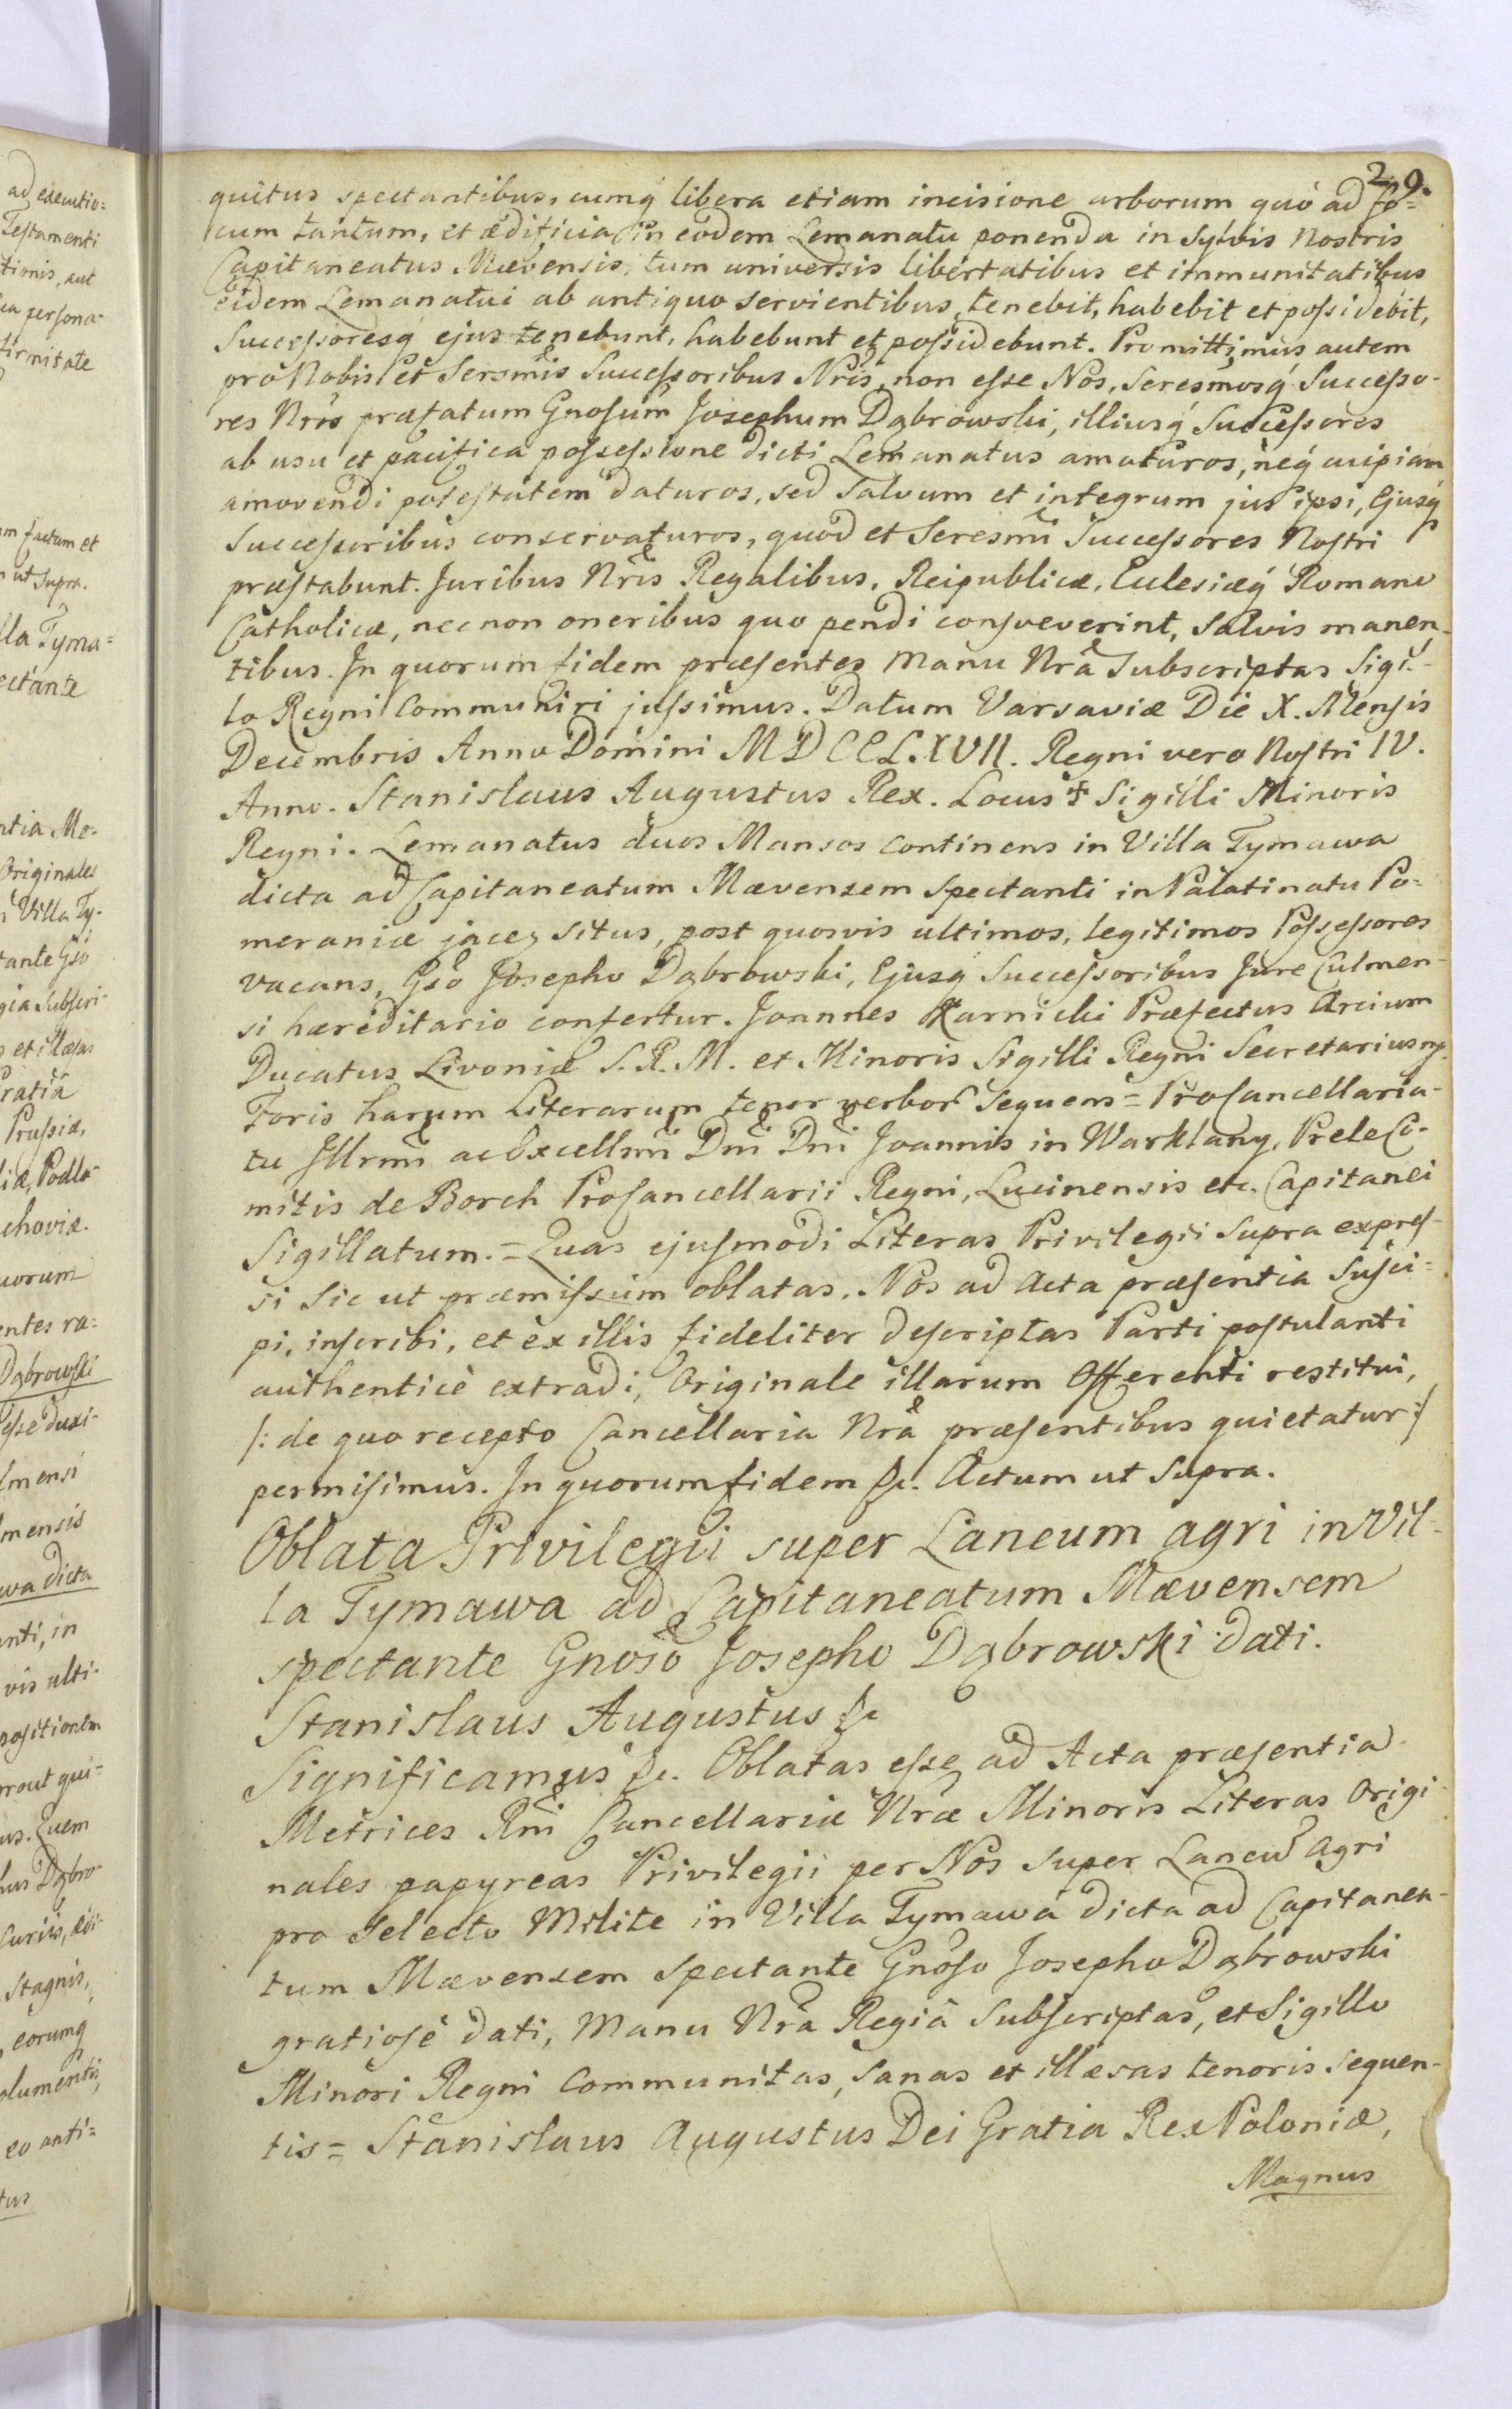 29.
quitus spectantibus, cumq́ libera etiam incisione arborum quó ad fo=
cum tantum, et ædificia in eodem Lemanatu ponenda in Sylvis Nostris
Capitaneatus Mævensis, tum universis libertatibus et immunitatibus
eidem Lemanatui ab antiquo servientibus, tenebit, habebit et possidebit,
Successoresq́ ejus tenebunt, habebunt et possidebunt. Promittimus autem
pro Nobis et Sersm̃is Successoribus Nr̃is, non esse Nos, Seresmosq́ Successo-
res Nr̃os præfatum Gnosum Josephum Dąbrowski, illiusq́ Successores
ab usu et pacifica possessione dicti Lemanatus amoturos, neq́ cuipiam
amovendi potestatem daturos, sed salvum et integrum jus ipsi, Ejusq́
Successoribus conservaturos, quod et Seresm̃i Successores Nostri
præstabunt. Juribus Nr̃is Regalibus, Reipublicæ, Eclesiæq́ Romano
Catholicæ, necnon oneribus quo pendi consveverint, salvis manen-
tibus. In quorum fidem præsentes Manu Nr̃a Subscriptas Sigil-
lo Regni Communiri jussimus. Datum Varsaviæ Die X. Mensis
Decembris Anno Domini MDCCLXVII. Regni vero Nostri IV.
Anno. Stanislaus Augustus Rex. Locus ✝ Sigilli Minoris
Regni. Lemanatus duos Mansos continens in Villa Tymawa
dicta ad Capitaneatum Mævensem Spectanti in Palatinatu Po=
meraniæ jacen. situs, post quosvis ultimos, legitimos Possessores
vacans, Gso Josepho Dąbrowski, Ejusq́ Successoribus Jure Culmen-
si hæreditario confertur. Joannes Karnicki Præfectus Arcium
Ducatus Livoniæ S. R. M. et Minoris Sigilli Regni Secretarius mp.
Foris harum Literarum tenor verbor sequens = Procancellaria-
tu Illrm̃i ac Excellm̃i Dn̄i Dn̄i Joannis in Warklany, Prele Co-
mitis de Borch Procancellarii Regni, Lucinensis etc. Capitanei
Sigillatum. = Quas ejusmodi Literas Privilegii supra expres-
si sic ut præmissum oblatas. Nos ad Acta præsentia Susci=
pi, inscribi, et ex illis fideliter descriptas Parti postulanti
authenticè extradi, Originale illarum Offerenti restitui,
/: de quo recepto Cancellaria Nr̃a præsentibus quietatur :/
permisimus. In quorum fidem &c. Actum ut supra.
Oblata Privilegii super Laneum agri in Vil-
la Tymawa ad Capitaneatum Mævensem
spectante Gnoso Josepho Dąbrowski dati.
Stanislaus Augustus &c
Significamus &c. Oblatas esse ad Acta præsentia
Metrices Rn̄i Cancellariæ Nræ Minoris Literas origi-
nales papyreas Privilegii per Nos super Laneū Agri
pro selecto Milite in Villa Tymawa dicta ad Capitanea-
tum Mævensem Spectante Gnoso Josepho Dąbrowski
gratiosè dati, Manu Nr̃a Regiâ Subscriptas, et Sigillo
Minori Regni Communitas, sanas et illæsas tenoris sequen-
tis = Stanislaus Augustus Dei Gratia Rex Poloniæ,
Magnus